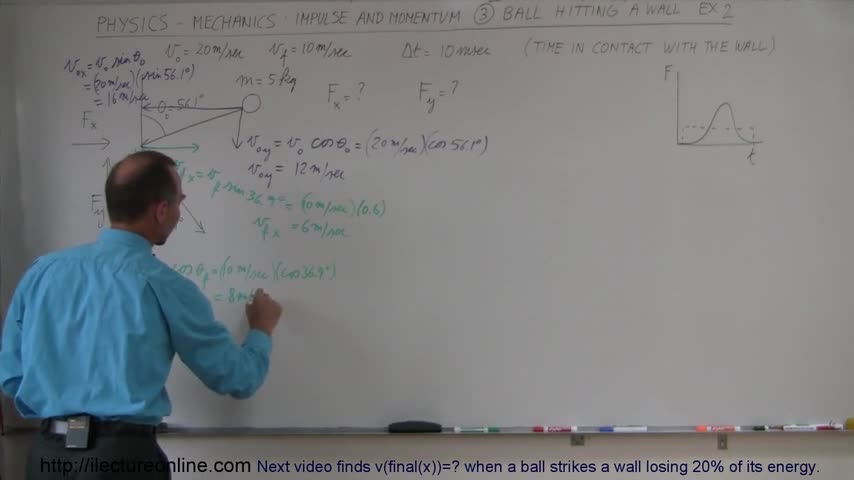 PHYSICS - MECHANICS: IMPULSE AND MOMENTUM ③ BALL HITTING A WALL EX 2
v₀ = 20 m/sec v_f = 10 m/sec Δt = 10 msec (TIME IN CONTACT WITH THE WALL)
v₀ₓ = v₀ sin θ₀
= (20 m/sec)(sin 56.1°)
= 16 m/sec
m = 5 kg
Fₓ = ? F_y = ?
θ₀ = 56.1°
Fₓ
F
t
v₀y = v₀ cos θ₀ = (20 m/sec)(cos 56.1°)
v₀y = 12 m/sec
fₓ = v_f sin 36.9° = (10 m/sec)(0.6)
v_fₓ = 6 m/sec
F
cos θ_f = (10 m/sec)(cos 36.9°)
= 8 m
http://ilectureonline.com Next video finds v(final(x))=? when a ball strikes a wall losing 20% of its energy.